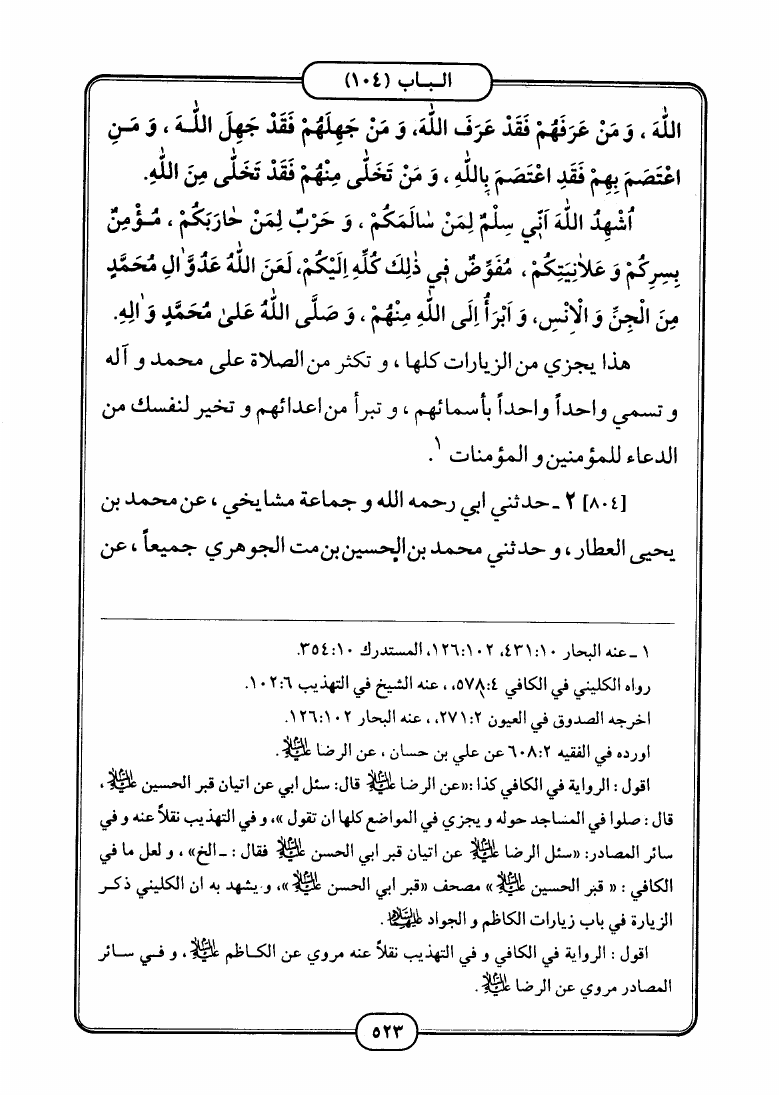 الباب (١٠٤)
اللّٰهَ ، وَ مَنْ عَرَفَهُمْ فَقَدْ عَرَفَ اللّٰهَ، وَ مَنْ جَهِلَهُمْ فَقَدْ جَهِلَ اللّٰهَ ، وَ مَنِ
اعْتَصَمَ بِهِمْ فَقَدِ اعْتَصَمَ بِاللّٰهِ ، وَ مَنْ تَخَلّٰى مِنْهُمْ فَقَدْ تَخَلّٰى مِنَ اللّٰهِ.
اُشْهِدُ اللّٰهَ اَنّي سِلْمٌ لِمَنْ سٰالَمَكُمْ ، وَ حَرْبٌ لِمَنْ حٰارَبَكُمْ ، مُؤْمِنٌ
بِسِرِكُمْ وَ عَلاٰنِيَتِكُمْ ، مُفَوِّضٌ في ذٰلِكَ كُلِّهِ اِلَيْكُمْ، لَعَنَ اللّٰهُ عَدُوَّ اٰلِ مُحَمَّدٍ
مِنَ الْجِنِّ وَ الْاِنْسِ، وَ اَبْرَأُ اِلَى اللّٰهِ مِنْهُمْ ، وَ صَلَّى اللّٰهُ عَلىٰ مُحَمَّدٍ وَ اٰلِهِ.
هذا يجزي من الزيارات كلها ، و تكثر من الصلاة على محمد و آله
و تسمي واحداً واحداً بأسمائهم ، و تبرأ من اعدائهم و تخير لنفسك من
الدعاء للمؤمنين و المؤمنات ١.
[٨٠٤] ٢ ـ حدثني ابي رحمه الله و جماعة مشايخي ، عن محمد بن
يحيى العطار ، و حدثني محمد بن الحسين بن مت الجوهري جميعاً ، عن
١ ـ عنه البحار ٤٣١:١٠، ١٢٦:١٠٢، المستدرك ٣٥٤:١٠.
رواه الكليني في الكافي ٥٧٨:٤، ، عنه الشيخ في التهذيب ١٠٢:٦.
اخرجه الصدوق في العيون ٢٧١:٢، ، عنه البحار ١٢٦:١٠٢.
اورده في الفقيه ٦٠٨:٢ عن علي بن حسان ، عن الرضا عليه السلام .
اقول : الرواية في الكافي كذا :«عن الرضا عليه السلام قال: سئل ابي عن اتيان قبر الحسين عليه السلام ،
قال : صلوا في المساجد حوله و يجزي في المواضع كلها ان تقول »، و في التهذيب نقلاً عنه و في
سائر المصادر: «سئل الرضا عليه السلام عن اتيان قبر ابي الحسن عليه السلام فقال : ـ الخ» ، و لعل ما في
الكافي : « قبر الحسين عليه السلام » مصحف «قبر ابي الحسن عليه السلام »، و يشهد به ان الكليني ذكر
الزيارة في باب زيارات الكاظم و الجواد عليهما السلام .
اقول : الرواية في الكافي و في التهذيب نقلاً عنه مروي عن الكاظم عليه السلام ، و في سائر
المصادر مروي عن الرضا عليه السلام .
٥٢٣